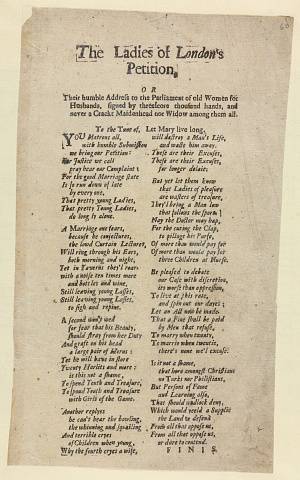 60
The Ladies of London's
Petition,
OR
Their humble Address to the Parliament of old Women for
Husbands, signed by threescore thousand hands, and
never a Crackt Maidenhead nor Widow among them all.
To the Tune of, Let Mary live long,
YOU Matrons all,
with humble Submission
we bring our Petition:
For Justice we call
pray hear our Complaint;
For the good Marriage state
Is so run down of late
by every one,
That pretty young Ladies,
That pretty Young Ladies,
do long lye alone.
A Marriage one fears,
because he conjectures,
the loud Curtain Lectures,
Will ring through his Ears,
both morning and night,
Yet in Taverns they'l roar
with a noise ten times more
and bottles and wine,
Still leaving young Lasses,
Still leaving young Lasses,
to sigh and repine.
A second wont wed
for fear that his Beauty,
should stray from her Duty
And graft on his head
a large pair of Horns:
Yet he will have in store
Twenty Harlots and more:
is this not a shame,
To spend Youth and Treasure,
To spend Youth and Treasure
with Girls of the Game.
Another replyes
he can't bear the bawling,
the whinning and squalling
And terrible cryes
of Children when young,
Why the fourth cryes a wife,
will destroy a Man's Life,
and waste him away.
These are their Excuses,
These are their Excuses,
for longer delaies:
But yet let them know
that Ladies of pleasure
are wasters of treasure,
They'l bring a Man low
that follows the sport:
Nay the Doctor may hap,
For the curing the Clap,
to pillage his Purse,
Of more than would pay for
Of more than would pay for
three Children at Nurse.
Be pleased to debate
our Case with discretion,
its worse than oppression,
To live at this rate,
and spin out our dayes:
Let an Act now be made,
That a Fine shall be paid
by Men that refuse,
To marry when twenty,
To marry when twenty,
there's none we'l excuse.
Is it not a shame,
that here amongst Christians
no Turks nor Philistians,
But Persons of Fame
and Learning also,
That should wedlock deny,
Which would yield a Supplie
the Land to defend
From all that oppose us,
From all that oppose us,
or dare to contend.
FINIS.